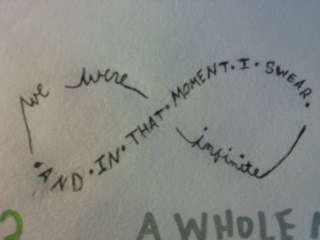 ·AND·IN·THAT·MOMENT·I·SWEAR·
we were
infinite
A WHOLE